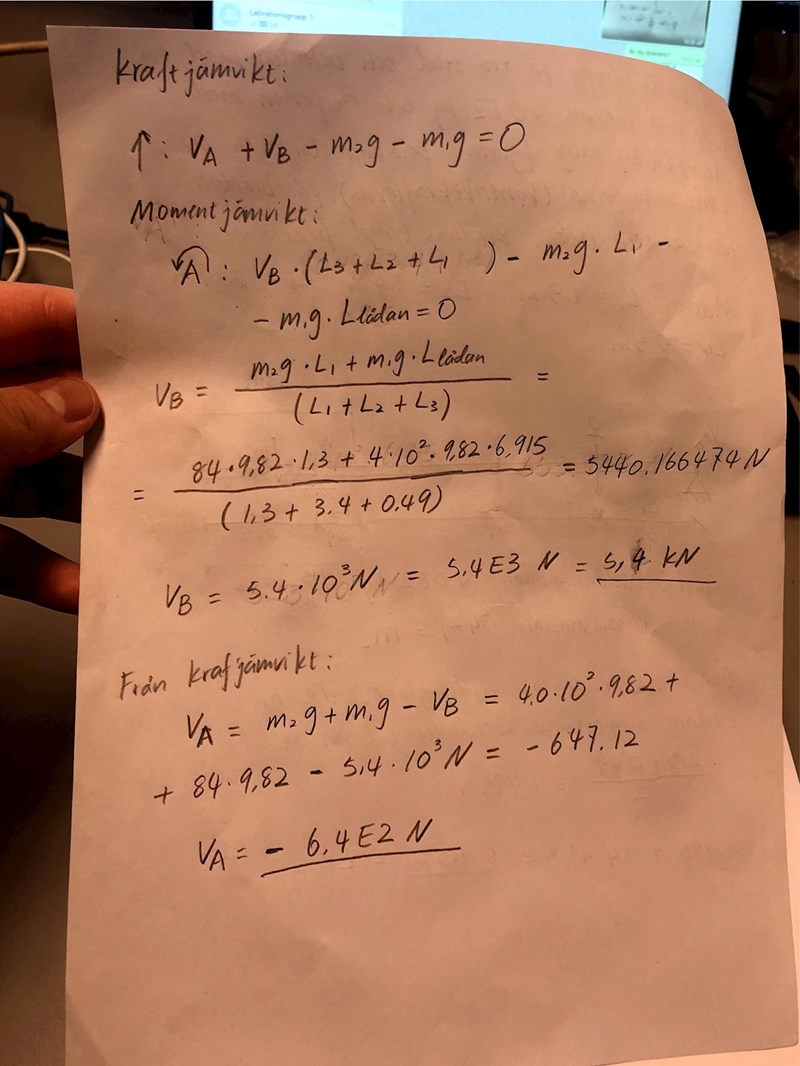 Laborationsgrupp 1
Kraftjämvikt:
↑: V_A + V_B - m₂g - m₁g = 0
Momentjämvikt:
A: V_B · (L₃ + L₂ + L₁ ) - m₂g · L₁ -
- m₁g · Llådan = 0
V_B = (m₂g · L₁ + m₁g · Llådan) / (L₁ + L₂ + L₃) =
= (84 · 9,82 · 1,3 + 4·10² · 9,82 · 6,915) / (1,3 + 3.4 + 0.49) = 5440,166474 N
V_B = 5.4 · 10³ N = 5,4E3 N = 5,4 kN
Från krafjämvikt:
V_A = m₂g + m₁g - V_B = 4.0·10² · 9,82 +
+ 84 · 9,82 - 5,4 · 10³ N = - 647.12
V_A = - 6,4E2 N